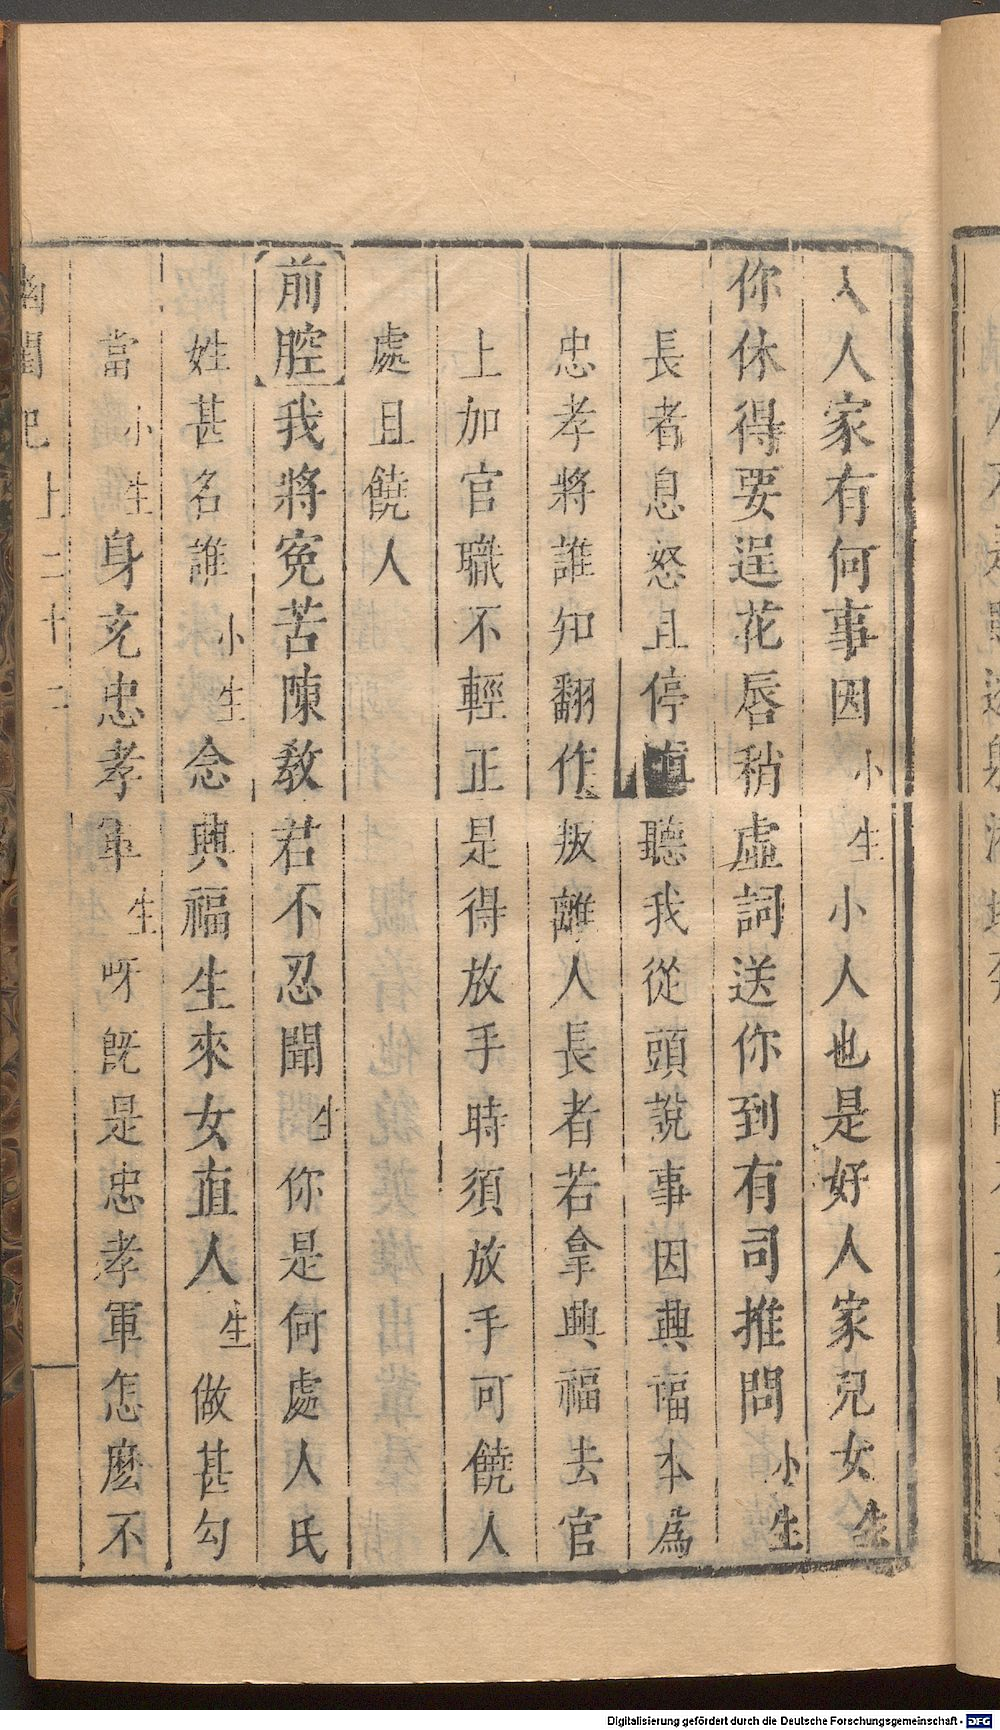 入人家有何事因小生小人也是好人家兒女生
你休得要逞花唇稍虛詞送你到有司推問小生
長者息怒且停嗔聽我從頭說事因興福本爲
忠孝將誰知翻作叛離人長者若拿興福去官
上加官職不輕正是得放手時須放手可饒人
處且饒人
前腔我將寃苦陳教君不忍聞生你是何處人氏
姓甚名誰小生念興福生來女直人生做甚勾
當小生身充忠孝軍生呀旣是忠孝軍怎麽不
幽閨記上二十二
Digitalisierung gefördert durch die Deutsche Forschungsgemeinschaft - DFG